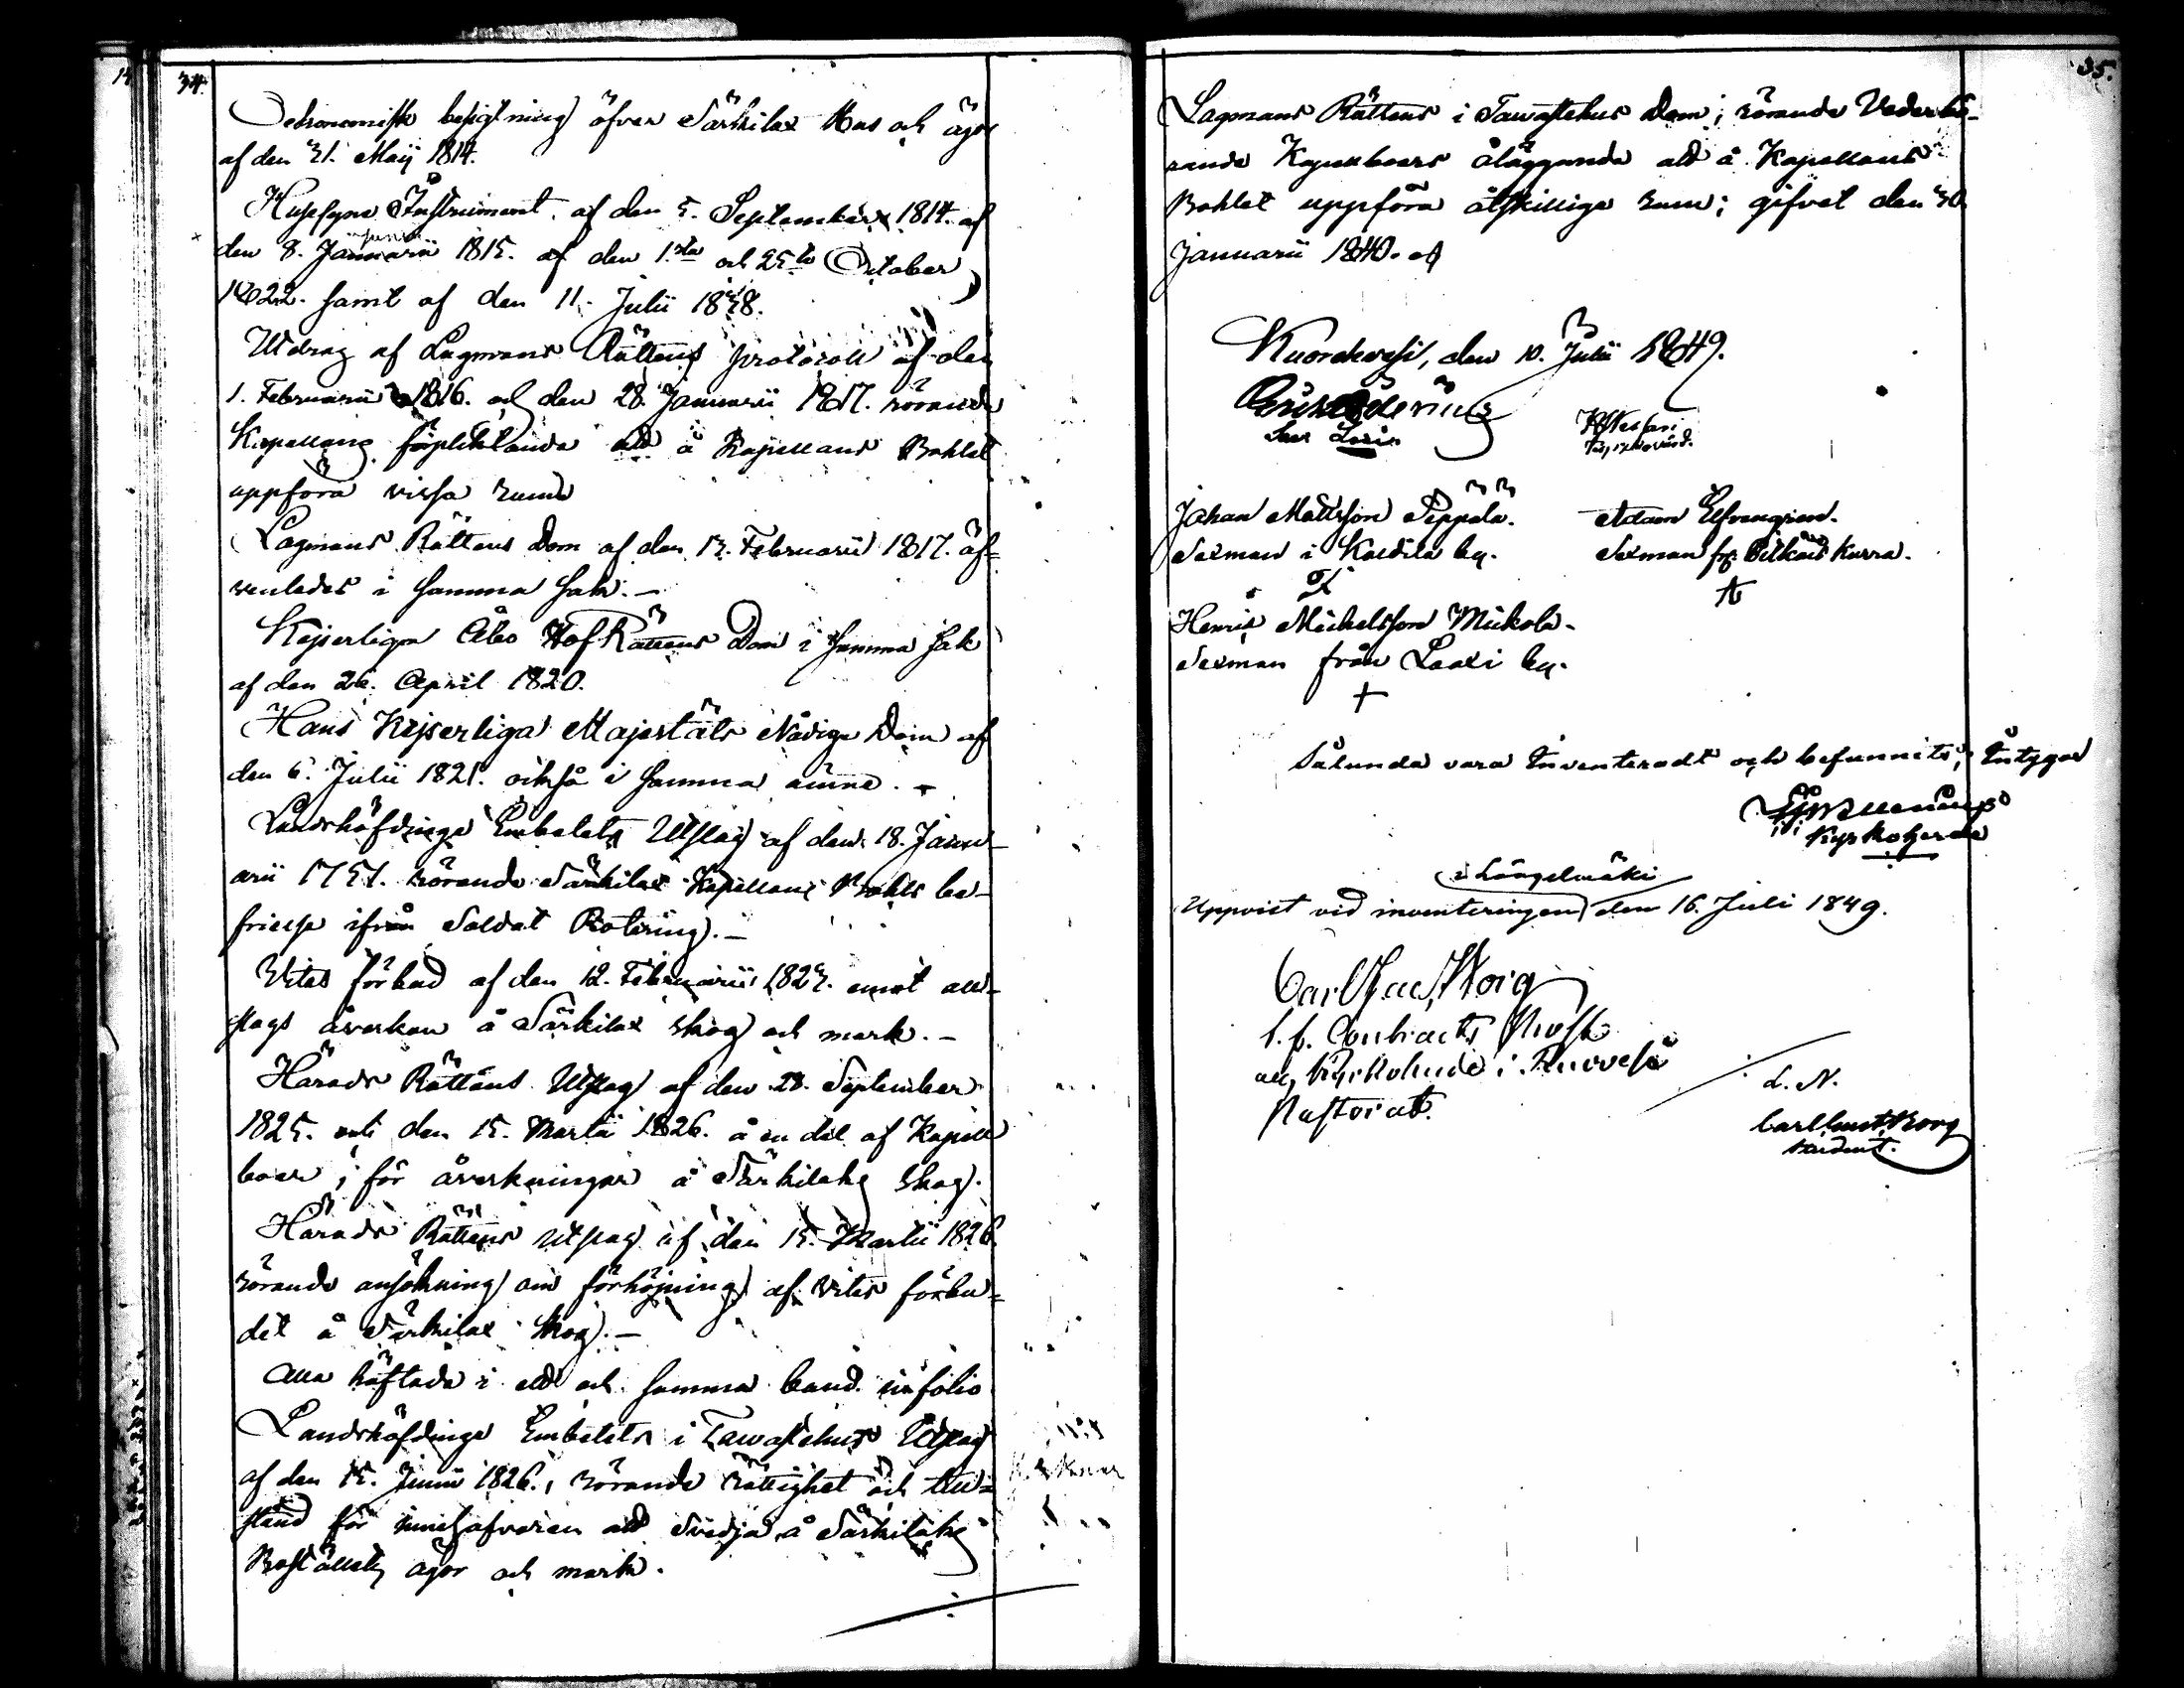 34.
Oekonomisk besigtning öfver Särkilax Hus och ägor
af den 31. Maij 1814.
Husesyns Instrument af den 5. September 1814. af
den 8. Januarii 1815. af den 1.sta och 25te October
1822. samt af den 11. Julii 1838.
Utdrag af Lagmans Rättens protocoll af den
1. Februarii 1816. och den 28. Januarii 1817. rörande
Kapellans förpliktande att å Kapellans Bohlet
uppföra vissa rum
Lagmans Rättens Dom af den 13. Februarii 1817. äf=
venledes i samma sak.-
Kejserliga Åbo HofRättens Dom i samma sak
af den 26. April 1820.
Hans Kejserliga Majestäts Nådiga Dom af
den 6. Julii 1821. också i samma ämne. -
Landshöfdinge Embetets Utslag af den 18. Janu-
arii 1751. rörande Särkilax Kapellans Bohls be-
frielse ifrån Soldat Rotering.-
Vites förbud af den 12. Februarii 1823. emot all-
slags åverkan å Särkilax skog och mark.-
Härads Rättens Utslag af den 28. September
1825. och den 15. Martii 1826. å en del af Kapell
boer; för åverkningar å Särkilaks skog.
Härads Rättens utslag af den 15. Martii 1826.
rörande ansökning om förhöjning af vites förbu=
det å Särkilax skog.-
Alla häftade i ett och samma band in folio
Landshöfdinge Embetets i Tawastehus Utslag
af den 15. Junii 1826., rörande rättighet och till=
stånd för innehafvaren att svedja å Särkilaks
Boställets ägor och mark.
35.
Lagmans Rättens i Tawastehus Dom; rörande Vederbö-
rande Kapellboers åläggande att å Kapellans
Bohlet uppföra åtskillige rum; gifvet den 30
Januarii 1840.
Kuorehvesi, den 10. Julii 1849.
Johan Mattsson Seppälä.
Adam Elfvengren.
Sexman i Kaldila by.
Sexman fr. Pitkäis Kurra.
Henric Michelsson Mickola.
Sexman från Laaxi by.
+
Sålunda vara Inventeradt och befunnits; Intygar
Kyrkoherde
i Längelmäki
Uppvist vid inventeringen den 16. Juli 1849.
Carl Gust. Borg
t. f. Contracts Prost
och Kyrkoherde i Ruovesi
Pastorat.
L. N.
Carl Gust. Borg
Student.